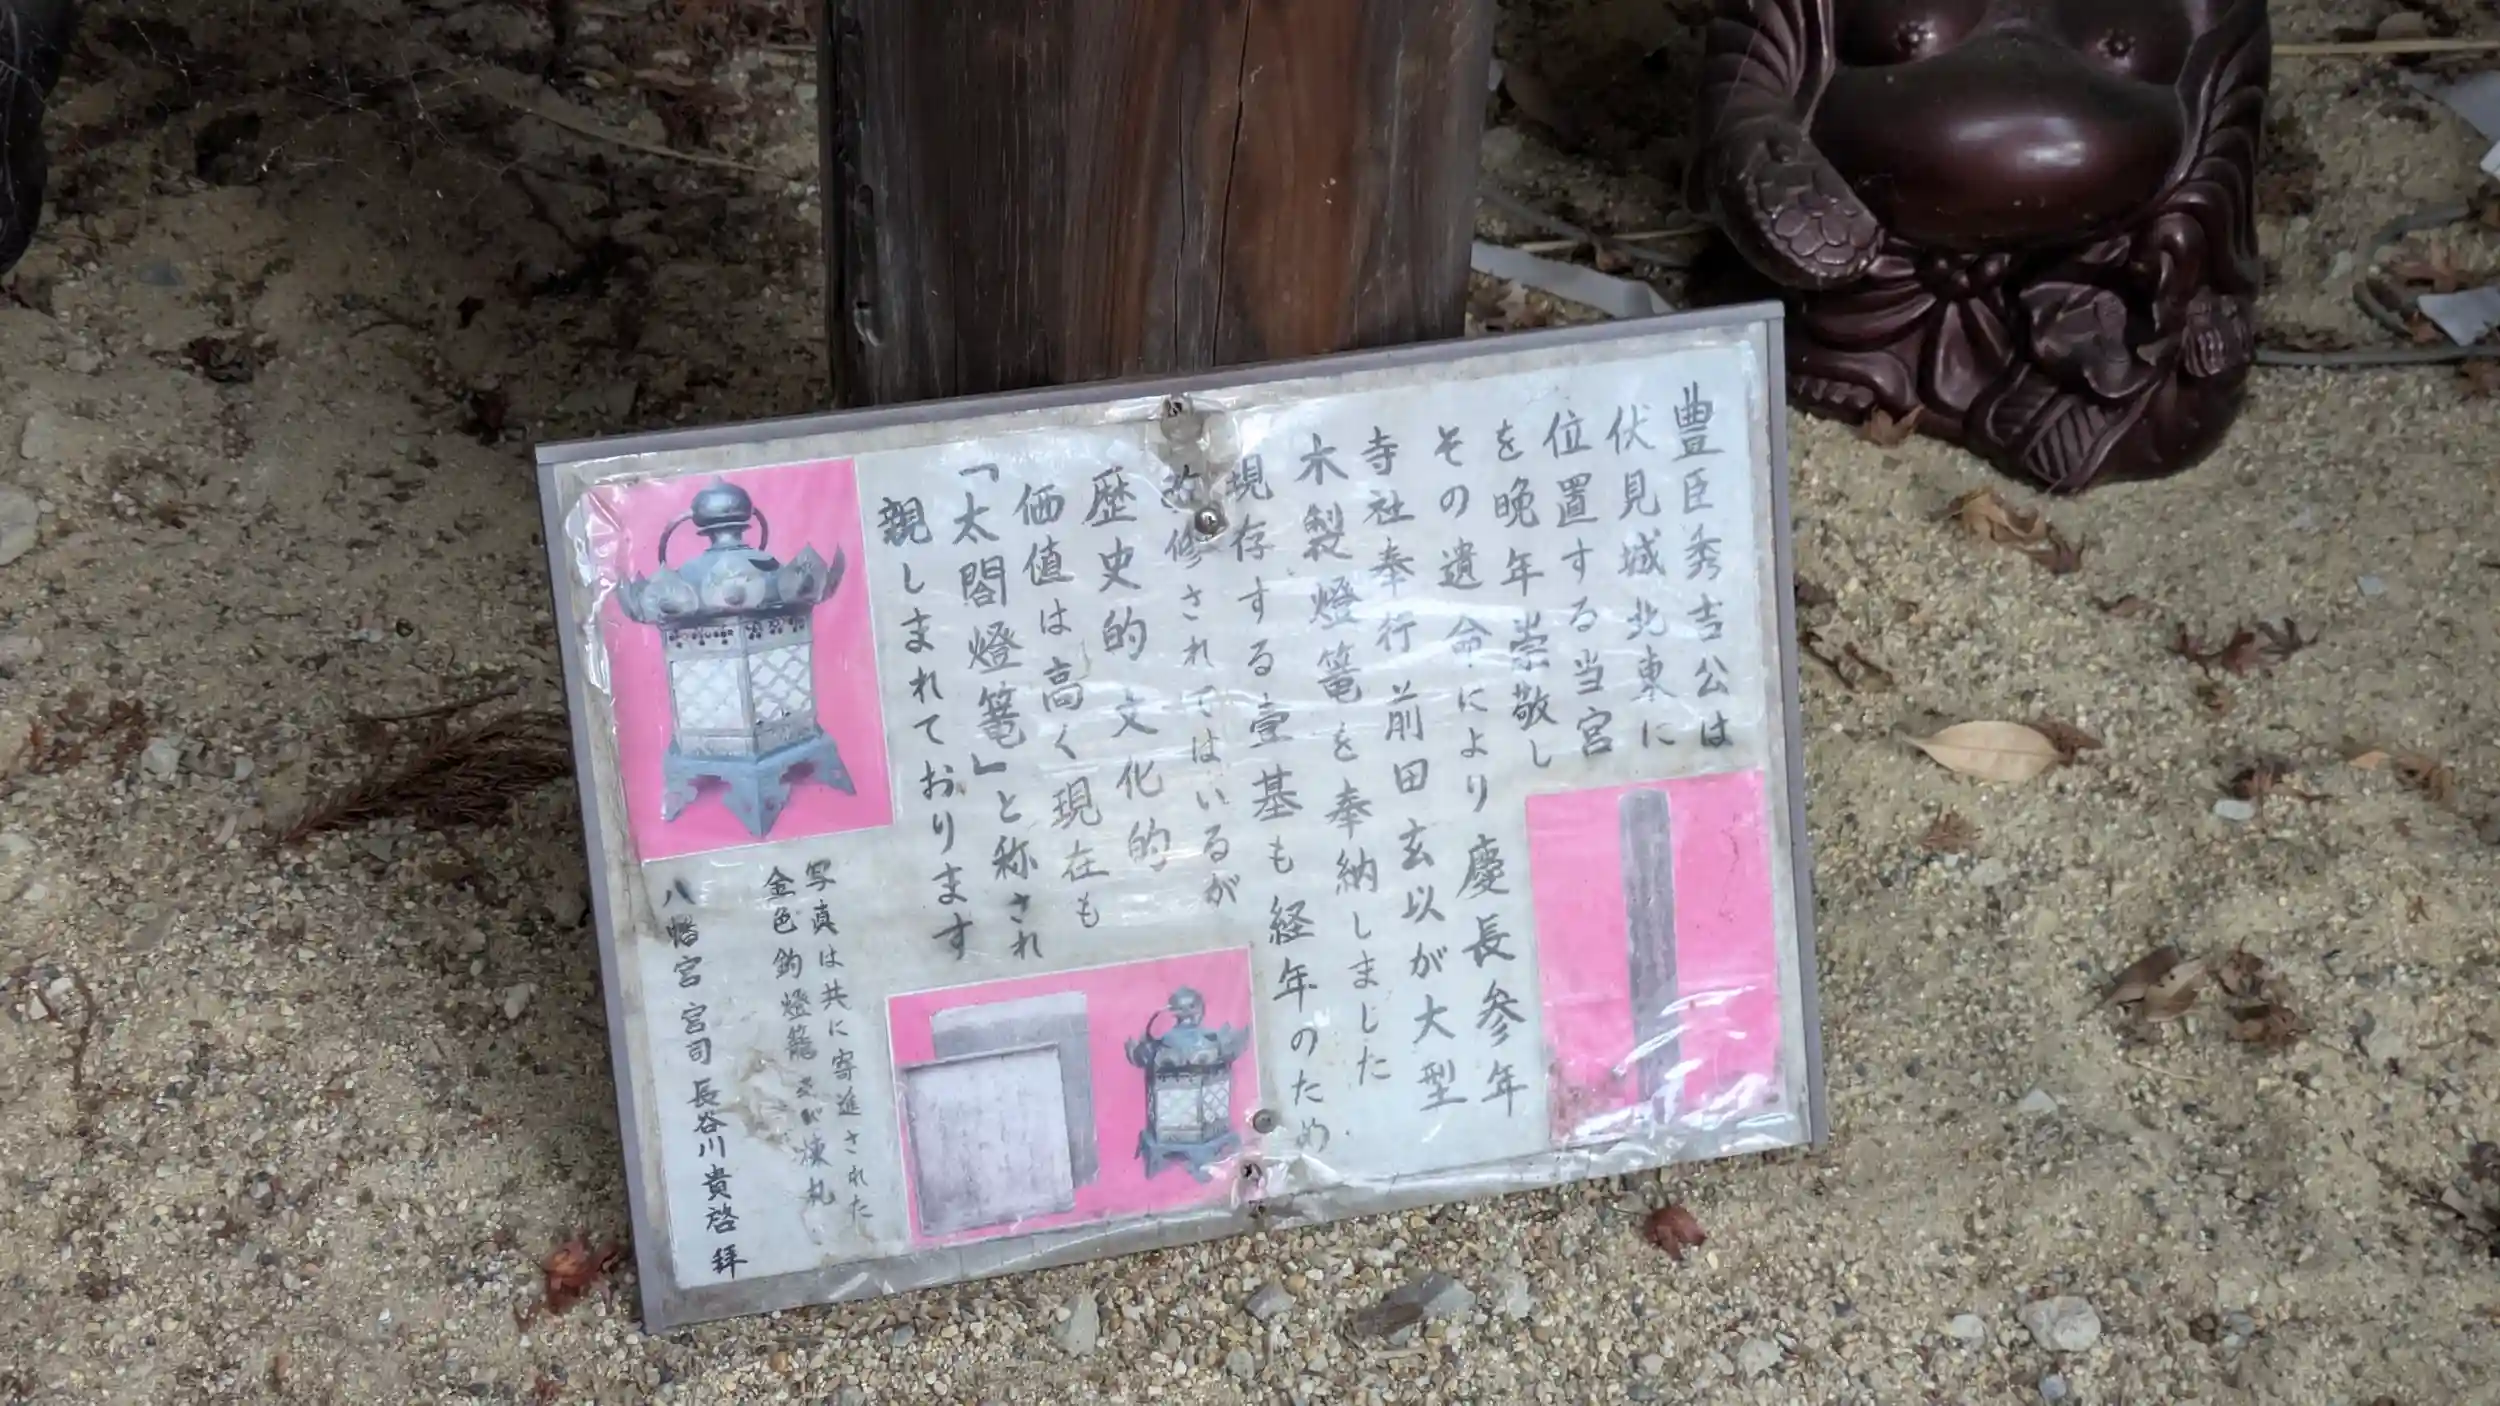 豊臣秀吉公は
伏見城北東に
位置する当宮
を晩年崇敬し
その遺命により慶長参年
寺社奉行前田玄以が大型
木製燈篭を奉納しました
現存する壹基も経年のため
改修されてはいるが
歴史的文化的
価値は高く現在も
「太閤燈篭」と称され
親しまれております
写真は共に寄進された
金色釣燈籠及び棟札
八幡宮 宮司 長谷川貴啓 拝